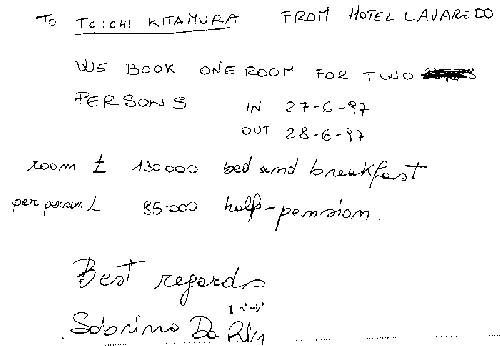 TO TOICHI KITAMURA FROM HOTEL LAVAREDO
WE BOOK ONE ROOM FOR TWO
PERSONS IN 27-6-97
OUT 28-6-97
room £ 130000 bed and breakfast
per person L 85.000 half-pension.
Best regards
Sabrina De